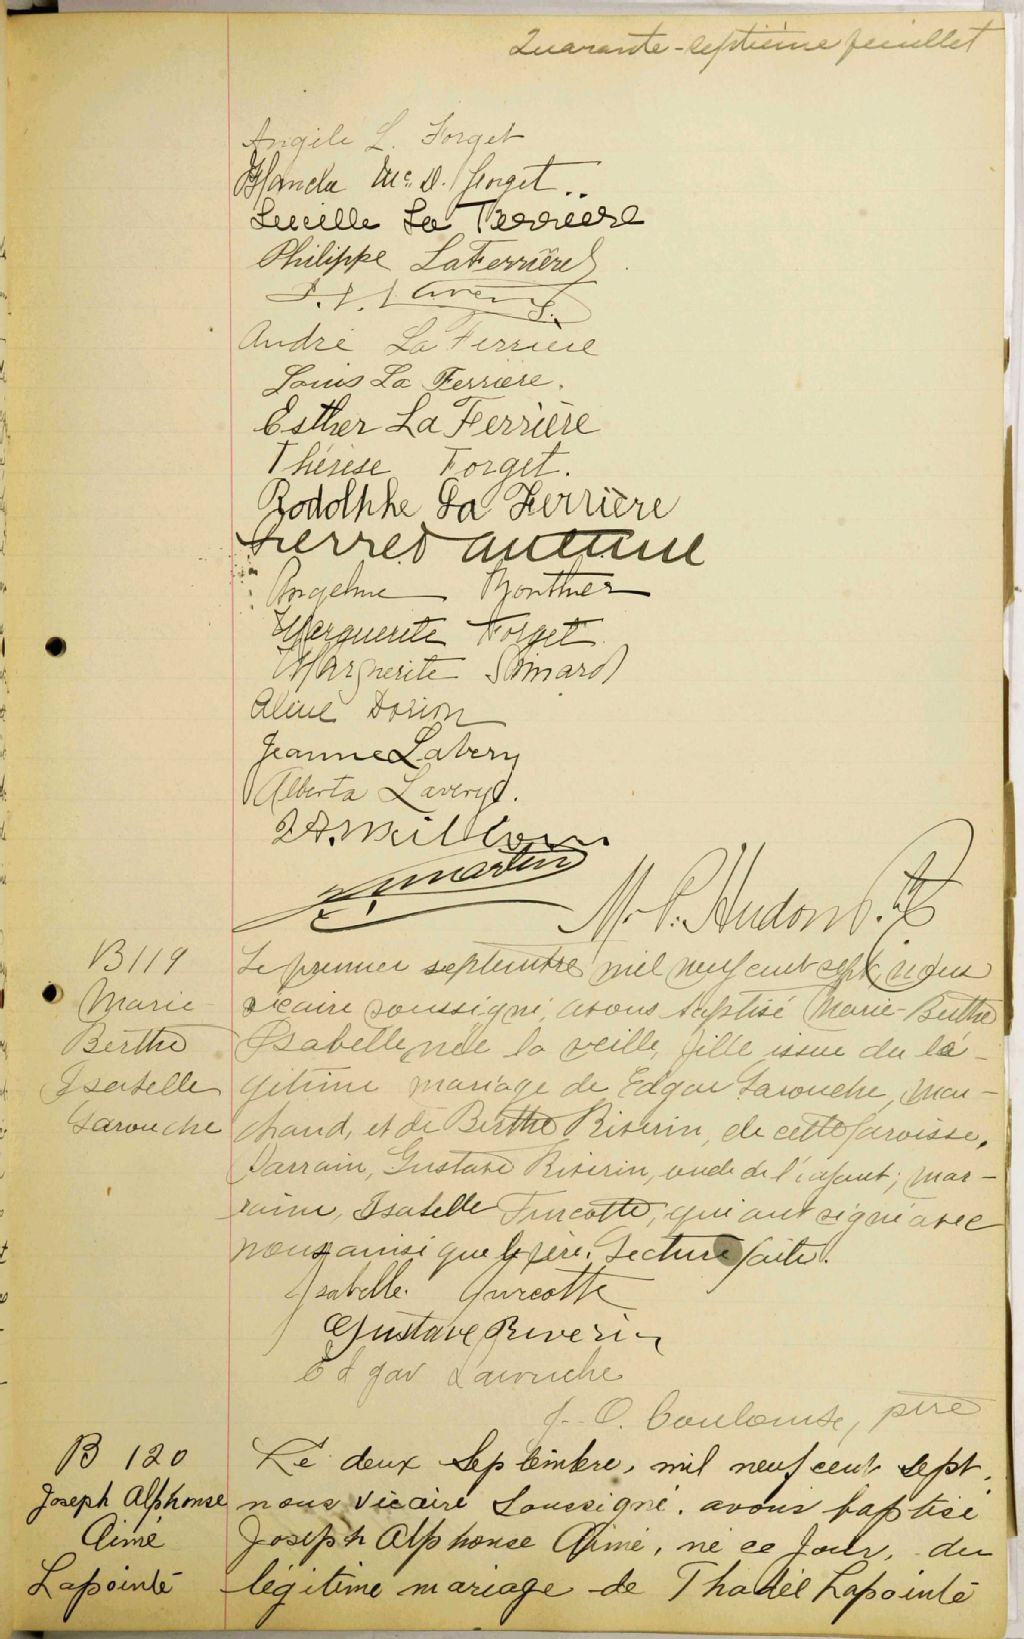 Quarante-septième feuillet
Angéle L. Forget
Blanche Mc. D. Forget
Lucille La Ferrière
Philippe LaFerrière
André La Ferrière
Louis La Ferrière.
Esther La Ferrière
Thérèse Forget.
Rodolphe La Ferrière
Angeline
Marguerite Forget
Marguerite Simard
Aline Dorion
Jeanne Lavery
Alberta Lavery.
Martin
M. P. Hudon Ptre
B 119
Marie
Berthe
Isabelle
Larouche
Le premier septembre mil neuf cent sept, nous
vicaire soussigné, avons baptisé Marie-Berthe
Isabelle née la veille, fille issue du lé-
gitime mariage de Edgar Larouche, mar-
chand, et de Berthe Riverin, de cette paroisse.
Parrain, Gustave Riverin, oncle de l'enfant; mar-
raine, Isabelle Turcotte, qui ont signé avec
nous ainsi que le père. Lecture faite.
Isabelle Turcotte
Gustave Riverin
Edgar Larouche
J. O. Coulombe, ptre
B 120
Joseph Alphonse
Aimé
Lapointe
Le deux Septembre, mil neuf cent sept,
nous vicaire soussigné, avons baptisé
Joseph Alphonse Aimé, né ce jour, du
légitime mariage de Thadée Lapointe